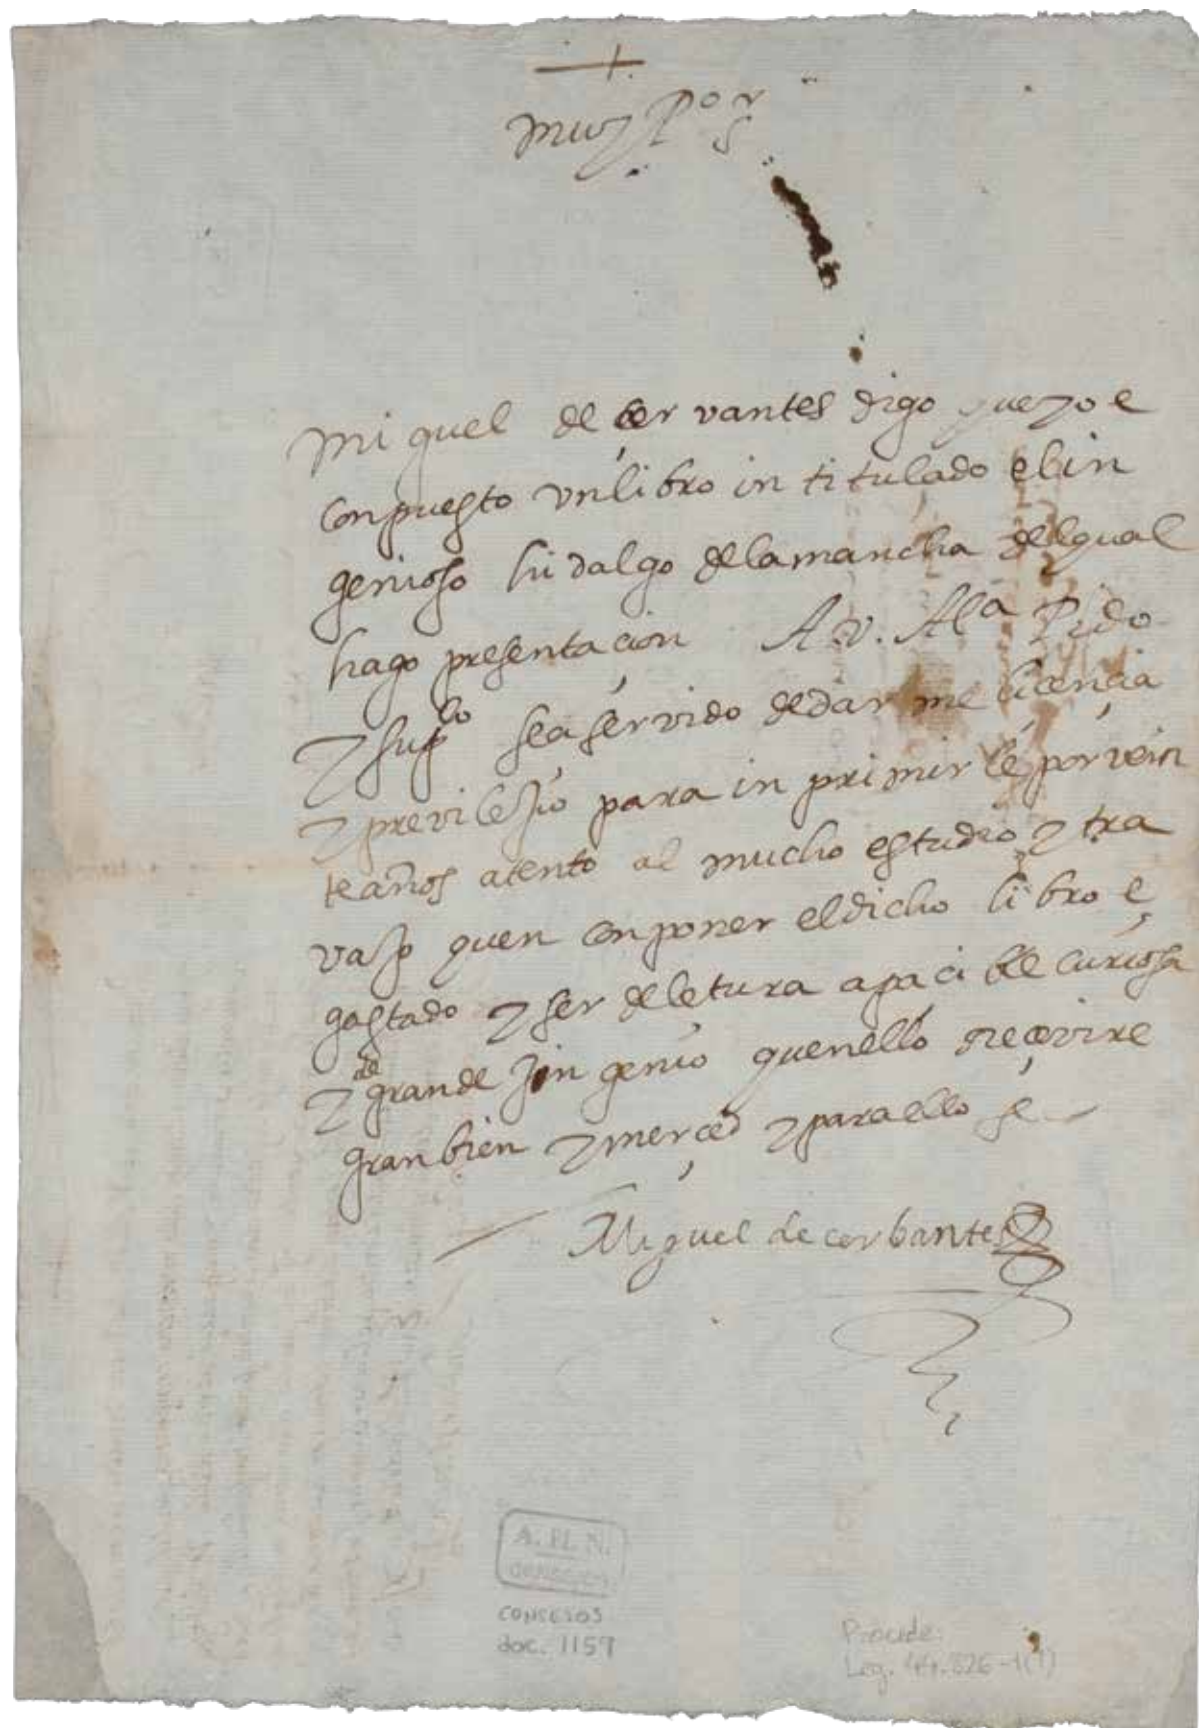 +
muy Pos
miguel de cervantes digo que yo e
conpuesto un libro intitulado el in
genioso hidalgo de la mancha del qual
hago presentaçion A. v. Ala Pido
y supco sea servido de dar me liçençia
y previlejio para inprimirle por vein
te años atento al mucho estudio y tra
vajo quen conponer el dicho libro e
gastado y ser de letura apacible curiosa
y de grande ingenio quenello reçevire
gran bien y merçed y para ello
Miguel de cerbantes
A. H. N.
CONSEJOS
CONSEJOS
doc. 1159
Procede:
Leg. 44.826-1(1)